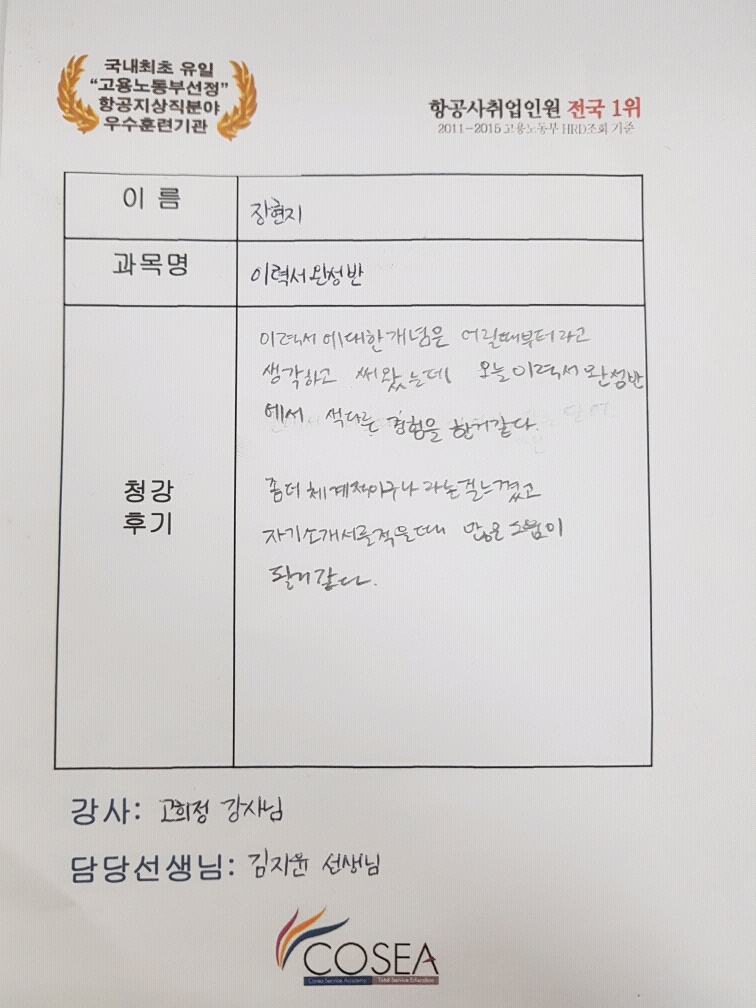 국내최초 유일
“고용노동부선정”
항공지상직분야
우수훈련기관
항공사취업인원 전국 1위
2011-2015 고용노동부 HRD조회 기준
이 름
장현지
과목명
이력서완성반
청강
후기
이력서에대한개념은 어릴때부터라고
생각하고 써왔는데 오늘이력서완성반
에서 색다른 경험을 한거같다.
좀더 체계적이구나 라는걸느꼈고
자기소개서를적을때 많은도움이
될거같다.
강사: 고희정 강사님
담당선생님: 김지윤 선생님
COSEA
Corea Service Academy Total Service Education